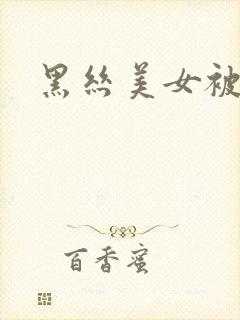 黑丝美女被
百香蜜